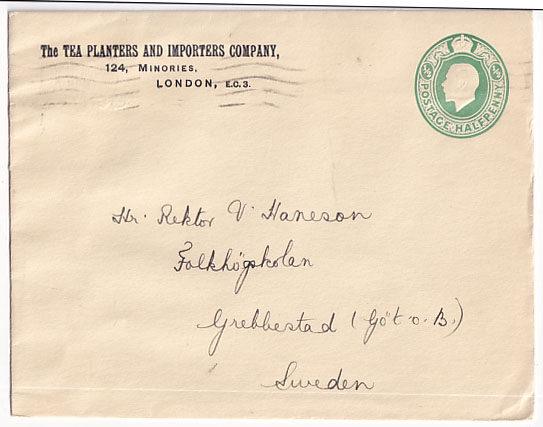 The TEA PLANTERS AND IMPORTERS COMPANY,
124, MINORIES.
LONDON, E.C. 3.
POSTAGE HALFPENNY
Hr. Rektor V. Haneson
Folkhögskolan
Grebbestad (Göt. o. B.)
Sweden